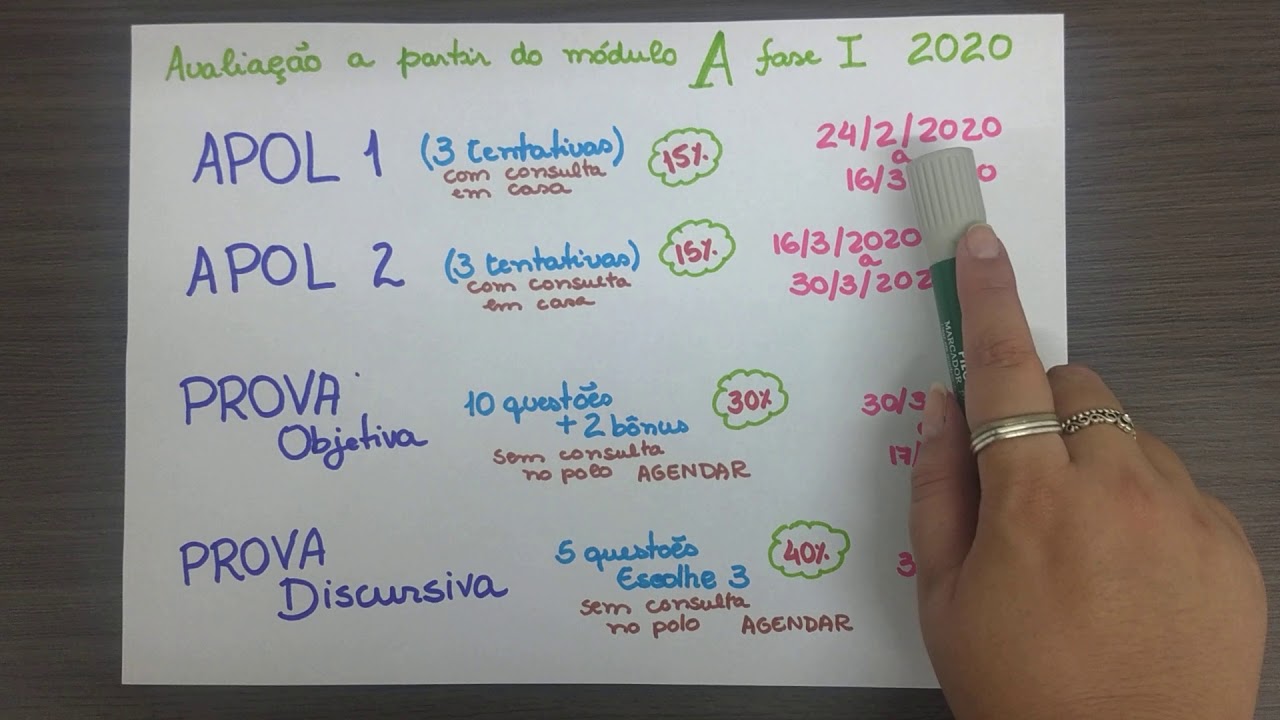 Avaliação a partir do módulo A fase I 2020
APOL 1 (3 tentativas) 15% 24/2/2020
com consulta a
em casa 16/3
APOL 2 (3 tentativas) 15% 16/3/2020
com consulta a
em casa 30/3/202
PROVA 10 questões 30% 30/3
Objetiva + 2 bônus
sem consulta 17/
no polo AGENDAR
PROVA 5 questões 40% 3
Discursiva Escolhe 3
sem consulta
no polo AGENDAR
MARCADOR